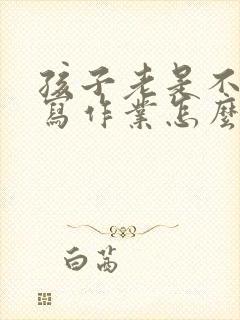 孩子老是不
寫作業怎麼
白茜